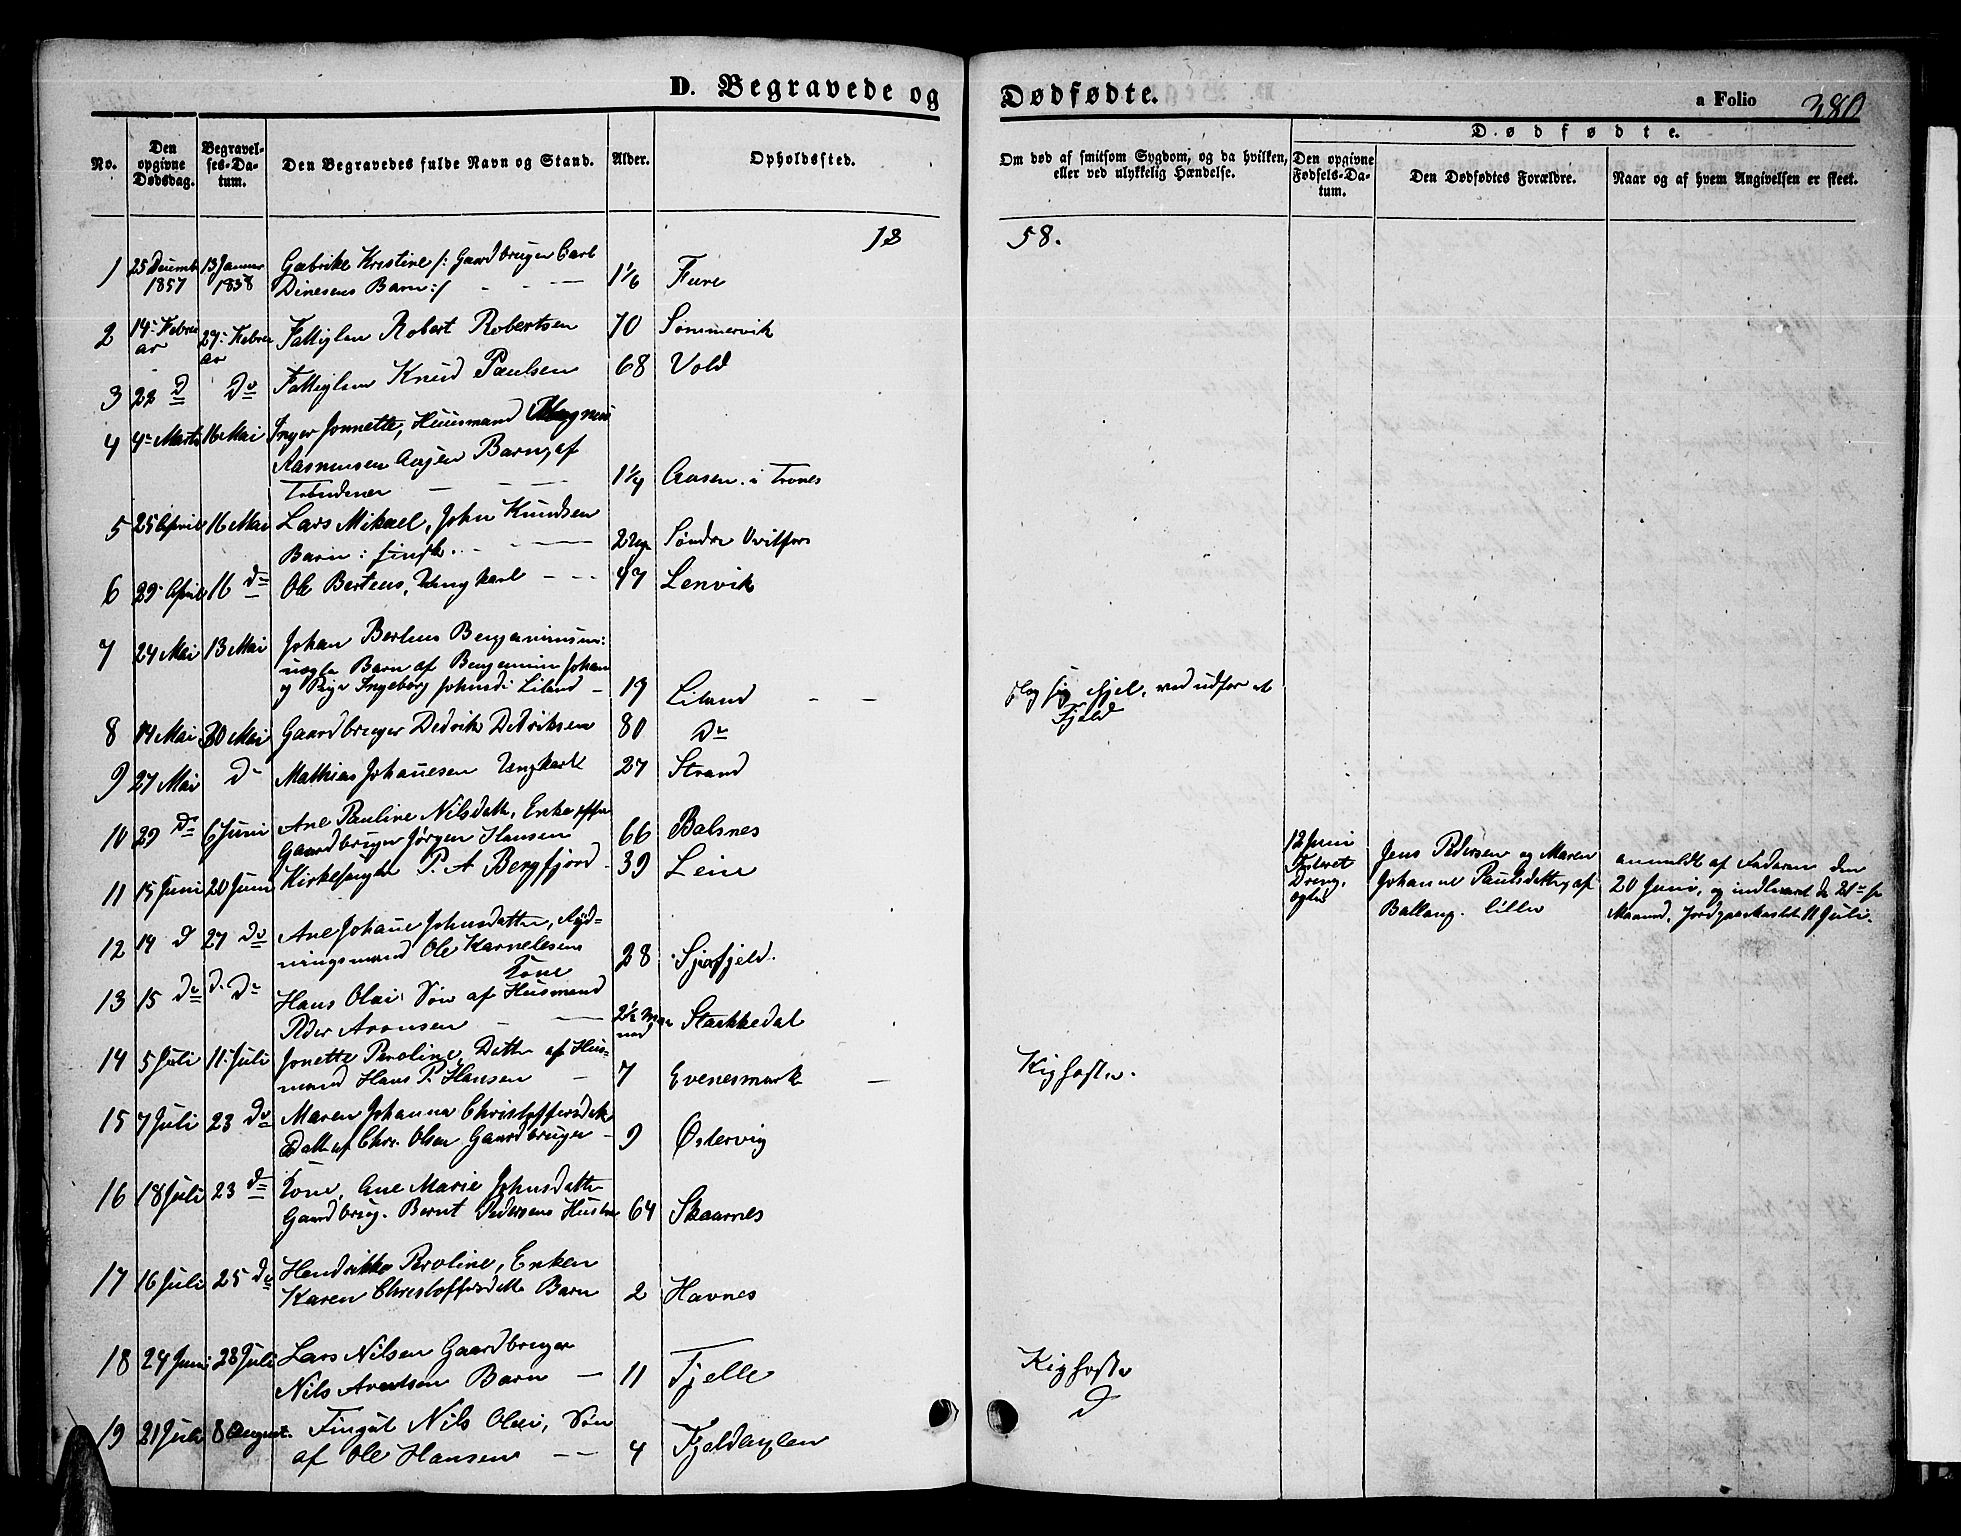 D. Begravede og Dødfødte. a Folio 380
Dødfødte.
No. Den opgivne Dødsdag. Begravelses-Datum. Den Begravedes fulde Navn og Stand. Alder. Opholdssted. Om død af smitsom Sygdom, og da hvilken, eller ved ulykkelig Hændelse. Den opgivne Fødsels-Datum. Den Dødfødtes Forældre. Naar og af hvem Angivelsen er skeet.
18 58.
1 25 Decemb 1857 13 Januar 1858 Gabrike Kristine /: Gaardbruger Carl
Dinesens Barn :/ - - - 1 1/6 Fure
2 14 Februar 27 Februar Fattiglem Robert Robertsen 70 Sommervik
3 22 D Do Fattiglem Knud Paulsen 68 Vold
4 4 Marts 16 Mai Inger Jonnette, Huusmand Magnus
Rasmussen Barn, af
1 1/4 Aasen i Tranes
5 25 April 16 Mai Lars Mikael, John Knudsen
Barn : 2 Søndre
6 29 April 16 Do Ole Berteus, Ungkarl - - - 47 Lenvik
7 24 Mai 13 Mai Johan Berteus Benjaminsen:
uægte Barn af Benjamin Johan
og Pige Ingeborg Johnsd: Liland - 19 Liland - - slog sig ihjel, ved udfor et
Fjeld
8 14 Mai 30 Mai Gaardbruger Dedrik Dedriksen 80 Do
9 27 Mai D Mathias Johanesen Ungkarl 27 Strand
10 29 Do 6 Juni Ane Pauline Nilsdatt, Enke efter
Gaardbruger Jørgen Hansen 66 Balsnes
11 15 Juni 20 Juni Kirkesanger P. A Bergfjord - 39 Leine
12 Juni Jens Pedersen og Maren anmeldt af Faderen den
Dreng, Johanne Paulsdatter, af 20 Juni, og
ægte Ballang. lille Maaned, Jordpaakastet 11 Juli.
12 14 D 27 Do Ane Johane Johnsdatter, Ryd-
ningsmand Ole Karnelesens
Kone 28
13 15 Do D. Do Hans Olai Søn af Husmand
Peder Aronsen - - 2 1/2 Maaned Stakkedal
14 5 Juli 11 Juli Jonette Peroline, Datter af Hus-
mand Hans P. Hansen - 7 Evenesmark - Kighoste.
15 7 Juli 23 Do Maren Johanna Christoffersdatt
Datt af Chr. Olsen Gaardbruger - 9 Østervig
16 18 Juli 23 Do Kone, Ane Marie Johnsdatter
Gaardbrug. Bernt Pedersens Hustru 64 Skaarnes
17 16 Juli 25 Do Hendrikke Peroline, Enken
Karen Christoffersdatt Barn 2 Havnes
18 24 Juni 28 Juli Lars Nilsen Gaardbruger
Nils Arentsen Barn - 11 Fjelle Kighoste
19 21 Juli 8 August. Fingal Nils Olai, Søn D
af Ole Hansen - - 4 Fjelddalen